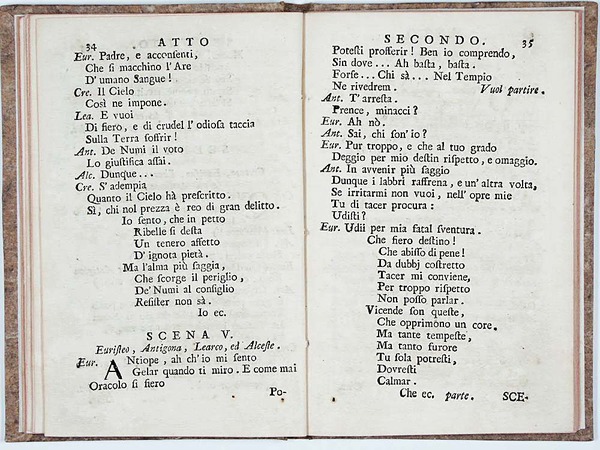 34 ATTO
Eur. Padre, e acconsenti,
Che si macchino l'Are
D'umano Sangue!
Cre. Il Cielo
Così ne impone.
Lea. E vuoi
Di fiero, e di crudel l'odiosa taccia
Sulla Terra soffrir!
Ant. De Numi il voto
Lo giustifica assai.
Alc. Dunque...
Cre. S'adempia
Quanto il Cielo hà prescritto.
Sì, chi nol prezza è reo di gran delitto.
Io sento, che in petto
Ribelle si desta
Un tenero affetto
D'ignota pietà.
Ma l'alma più saggia,
Che scorge il periglio,
De' Numi al consiglio
Resister non sà.
Io ec.
SCENA V.
Euristeo, Antigona, Learco, ed Alceste.
Eur. ANtiope, ah ch'io mi sento
Gelar quando ti miro. E come mai
Oracolo sì fiero
Po-
SECONDO. 35
Potesti profferir! Ben io comprendo,
Sin dove... Ah basta, basta.
Forse... Chi sà... Nel Tempio
Ne rivedrem. Vuol partire.
Ant. T'arresta.
Prence, minacci?
Eur. Ah nò.
Ant. Sai, chi son'io?
Eur. Pur troppo, e che al tuo grado
Deggio per mio destin rispetto, e omaggio.
Ant. In avvenir più saggio
Dunque i labbri raffrena, e un'altra volta,
Se irritarmi non vuoi, nell'opre mie
Tu di tacer procura:
Udisti?
Eur. Udii per mia fatal sventura.
Che fiero destino!
Che abisso di pene!
Da dubbj costretto
Tacer mi conviene,
Per troppo rispetto
Non posso parlar.
Vicende son queste,
Che opprimòno un core.
Ma tante tempeste,
Ma tanto furore
Tu sola potresti,
Dovresti
Calmar.
Che ec. parte. SCE-